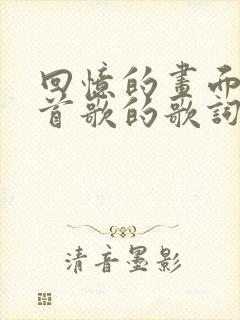 回憶的畫面
首歌的歌詞
清音墨影